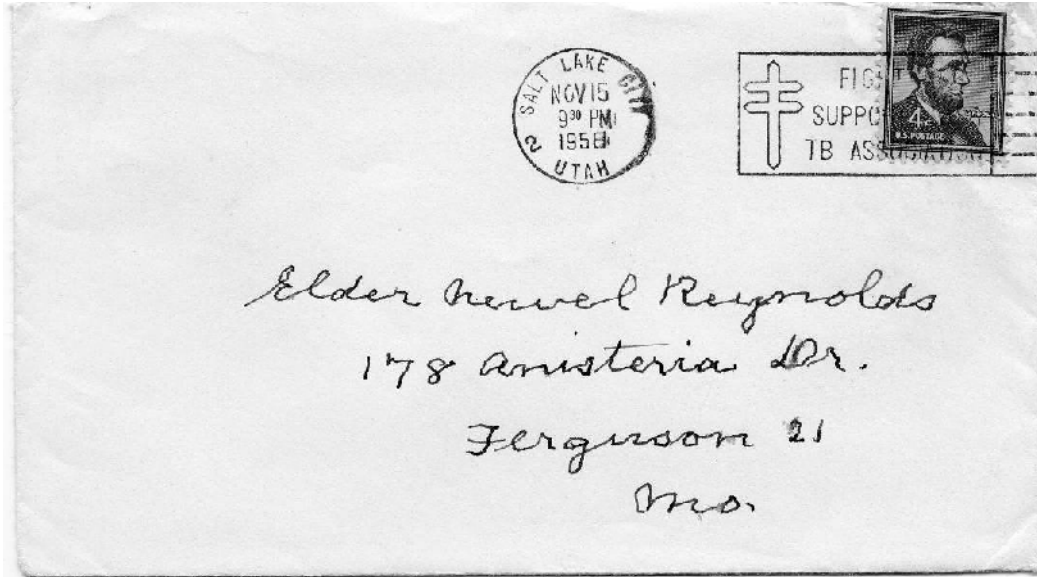 SALT LAKE CITY
NOV 15
9 30 PM
1958
2 UTAH
FIGHT
SUPPO
TB ASSOCIATION
4¢
U.S. POSTAGE
Elder Newel Reynolds
178 Anisteria Dr.
Ferguson 21
Mo.